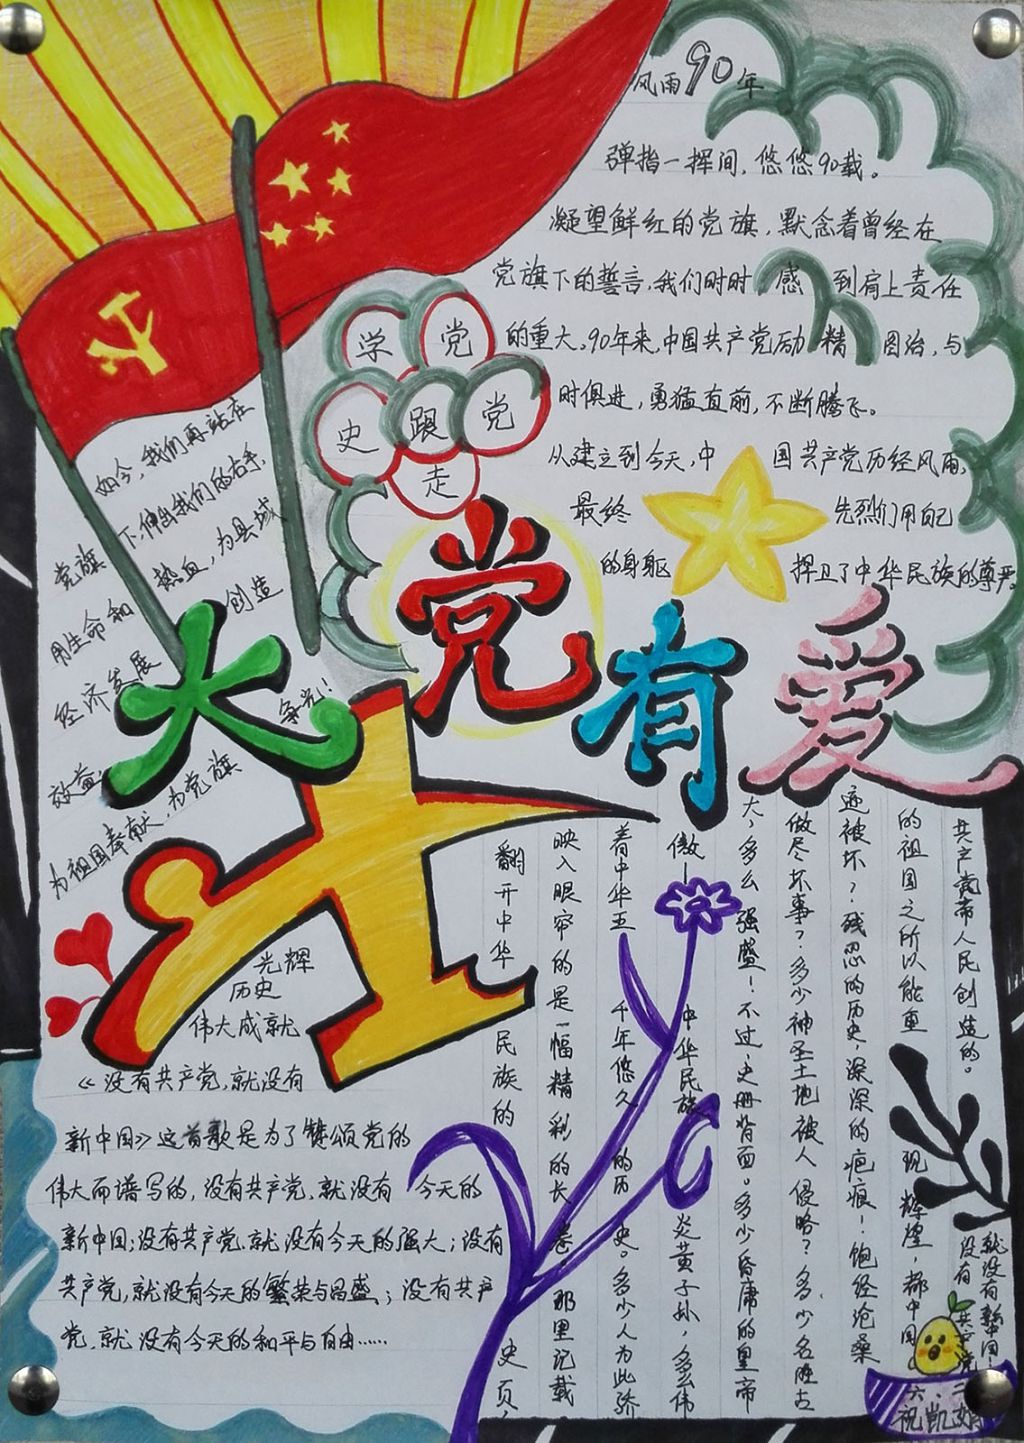 风雨90年
弹指一挥间，悠悠90载。
凝望鲜红的党旗，默念着曾经在
党旗下的誓言，我们时时感到肩上责任
的重大。90年来，中国共产党励精图治，与
时俱进，勇猛直前，不断腾飞。
从建立到今天，中国共产党历经风雨，
最终先烈们用自己
的身躯捍卫了中华民族的尊严
学党
史跟党
走
大党有爱
如今，我们再站在
党旗下，伸出我们的右手，
用生命和热血，为县域
经济发展创造
效益，争光！
为祖国奉献，为党旗
光辉
历史
伟大成就
《没有共产党，就没有
新中国》这首歌是为了赞颂党的
伟大而谱写的，没有共产党，就没有今天的
新中国；没有共产党，就没有今天的强大；没有
共产党，就没有今天的繁荣与昌盛；没有共产
党，就没有今天的和平与自由……
翻开中华民族的史页，
映入眼帘的是一幅精彩的长卷，那里记载
着中华五千年悠久的历史。多少人为此骄
傲！中华民族，炎黄子孙，多么伟
大，多么强盛！不过，史册背面。多少昏庸的皇帝
做尽坏事？多少神圣土地被人侵略？多少名胜古
迹被坏？残忍的历史，深深的疤痕！饱经沧桑
的祖国之所以能重现辉煌，都中国
共产党带人民创造的。
没有共产党
就没有新中国！
六．二
祝凯